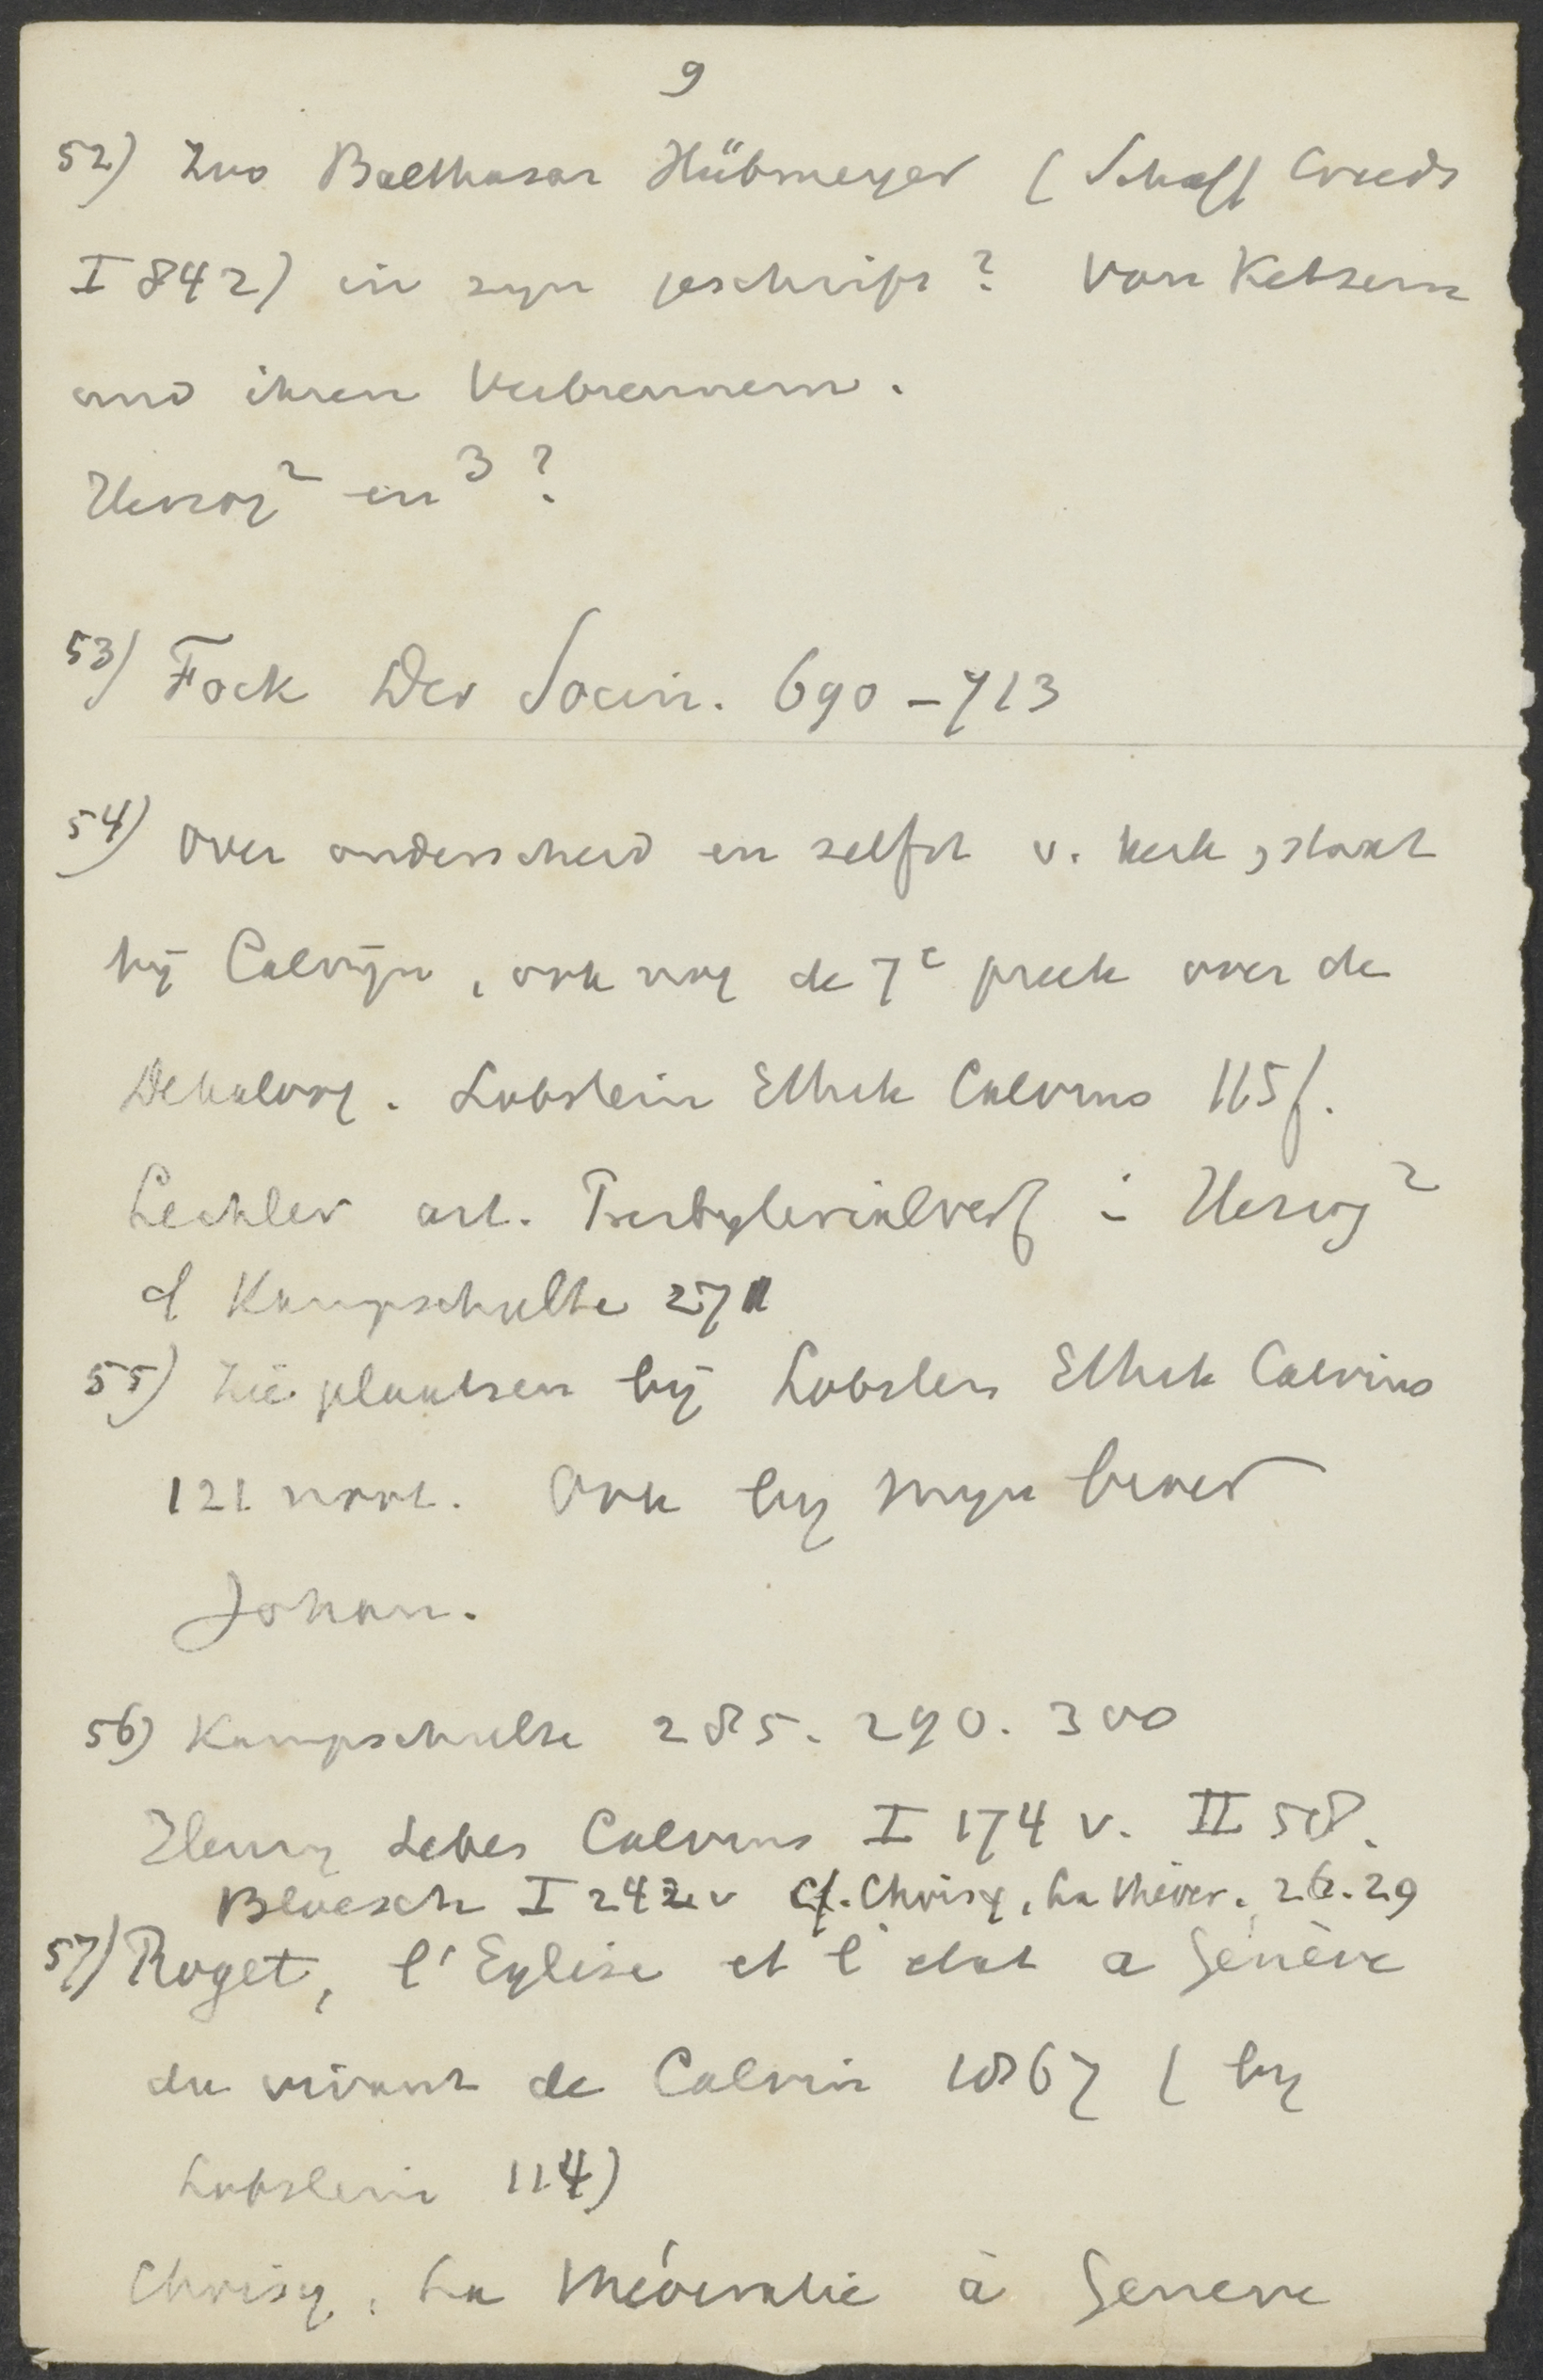 9
52) Zoo Balthasar Hübmeyer (Schaff Creeds
I 842) in zyn geschrift? Von Ketzern
und ihren Verbrennern.
Herzog² en ³?
53) Fock Der Socin. 690-713
54) Over onderscheid en zelfst v. kerk, staat
bij Calvijn, ook nog de 7e preek over de
Dekaloog. Lobstein Ethik Calvins 115f.
Lechler art. Presbyterialverf i Herzog²
cf Kampschulte 271
55) Zie plaatsen bij Lobstein Ethik Calvins
121 noot. Ook by myn broer
Johan.
56) Kampschulte 285. 290. 300
Henry Leben Calvins I 174 v. II 58.
Bloesch I 242 v cf. Choisy, La théocr. 26.29
57) Roget, l'Eglise et l'état a Génève
du vivant de Calvin 1867 (by
Lobstein 114)
Choisy, La théocratie à Geneve